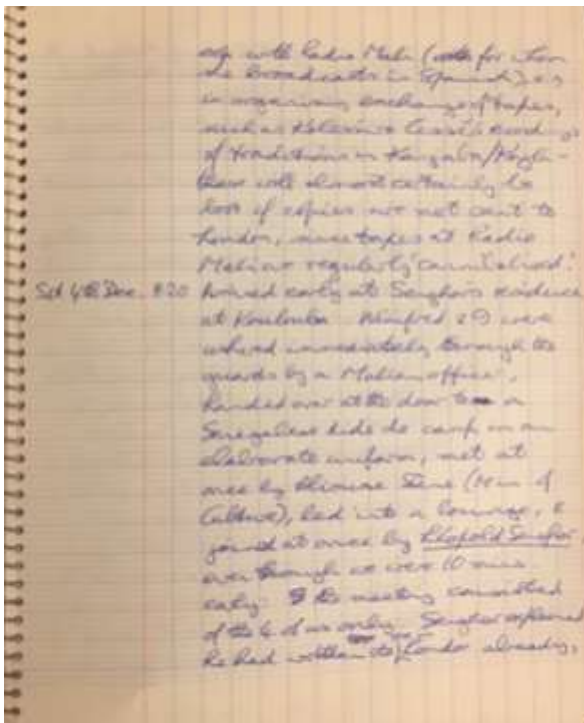 with Radio Mali (for whom
she broadcasts in Spanish)
in organising exchange of tapes,
such as
of traditions in Kangaba/
these will almost certainly be
lost if copies are not sent to
London, since tapes at Radio
Mali are regularly 'cannibalised'.
Sat 4th Dec. 8.20 Arrived early at Senghor's residence
at Koulouba. Winifred & I were
ushered immediately through the
guards by a Malian officer,
handed over at the door to a
Senegalese Aide de camp in an
elaborate uniform, met at
once by Alioune Sene (Min of
Culture), led into a lounge, &
joined at once by Léopold Senghor,
even though we were 10 mins
early. The meeting consisted
of the 4 of us only. Senghor explained
he had written to London already,